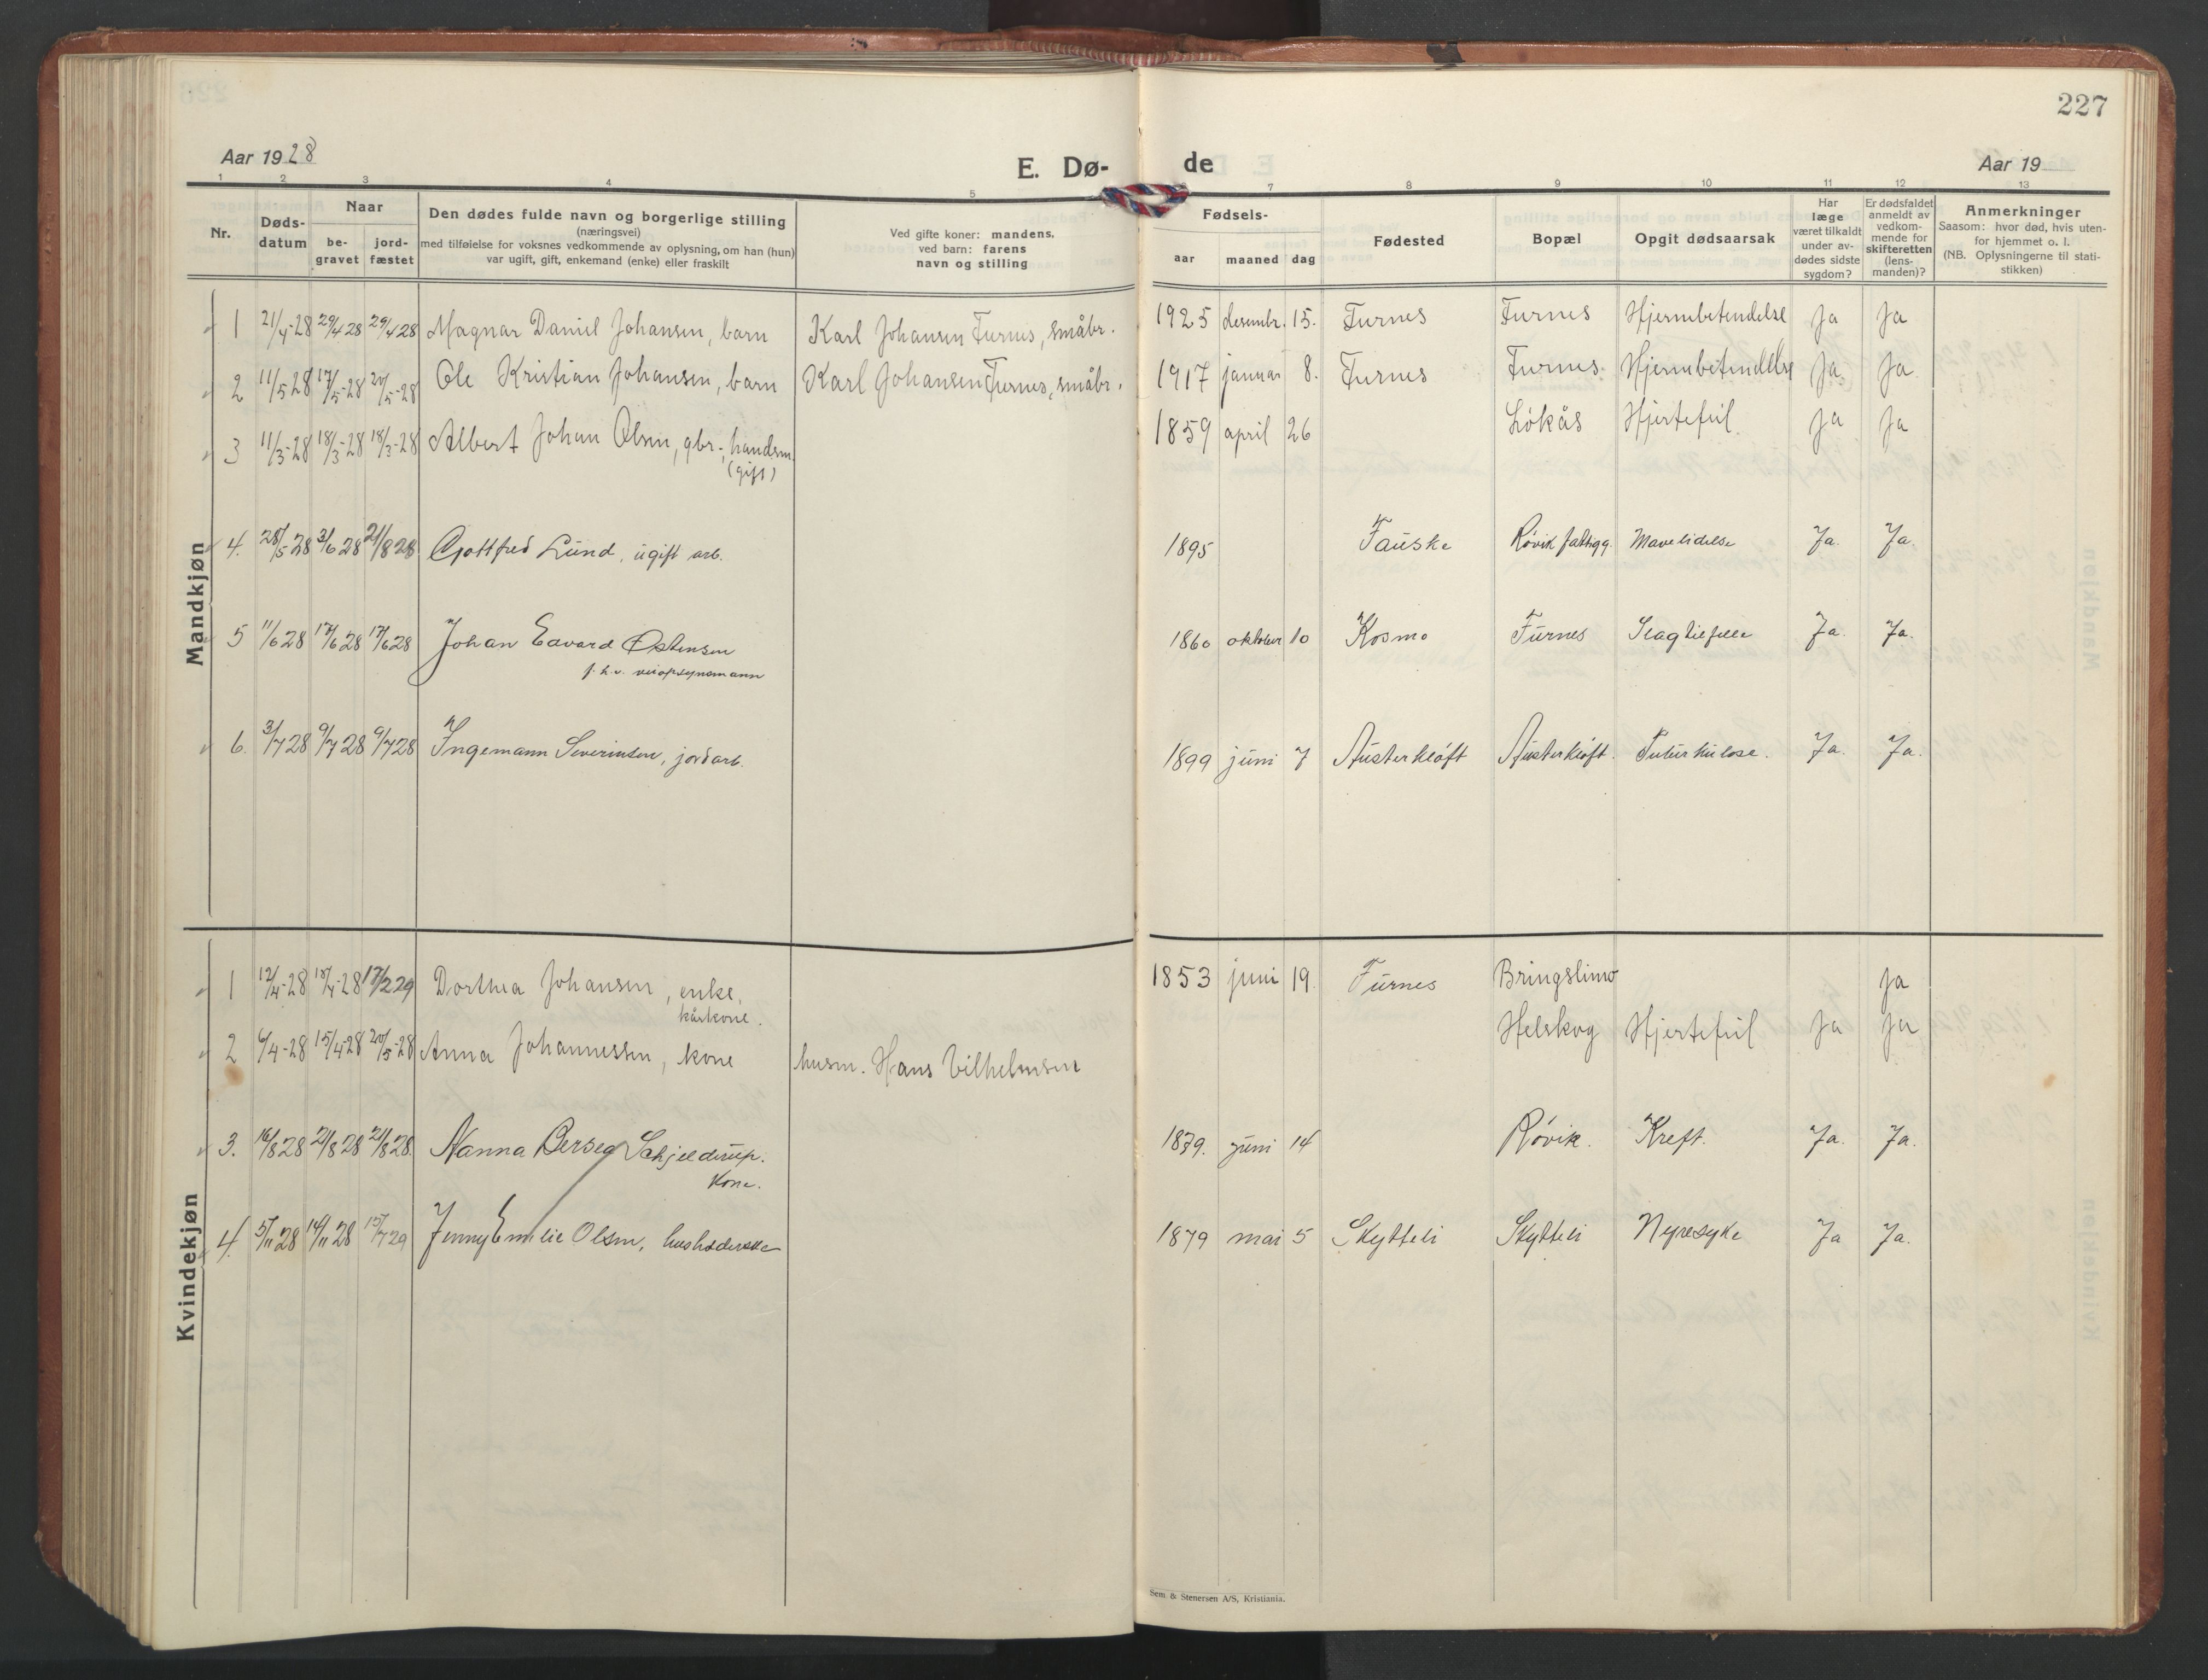 227
Aar 1928
E. Dø-
de
Aar 19
1 2 3 4 5 7 8 9 10 11 12 13
Nr.
Døds-
datum
Naar
be-
gravet
jord-
fæstet
Den dødes fulde navn og borgerlige stilling
(næringsvei)
med tilføielse for voksnes vedkommende av oplysning, om han (hun)
var ugift, gift, enkemand (enke) eller fraskilt
Ved gifte koner: mandens,
ved barn: farens
navn og stilling
Fødsels-
aar maaned dag
Fødested
Bopæl
Opgit dødsaarsak
Har
læge
været tilkaldt
under av-
dødes sidste
sygdom?
Er dødsfaldet
anmeldt av
vedkom-
mende for
skifteretten
(lens-
manden)?
Anmerkninger
Saasom: hvor død, hvis uten-
for hjemmet o. l.
(NB. Oplysningerne til stati-
stikken)
Mandkjøn
1 21/4-28 29/4 28 29/4 28 Magnar Daniel Johansen, barn Karl Johansen Furnes, småbr. 1925 desembr. 15. Furnes Furnes Hjernebetendelse Ja Ja
2 11/5 28 17/5-28 20/5-28 Ole Kristian Johansen, barn Karl Johansen Furnes, småbr. 1917 januar 8. Furnes Furnes. Hjernebetendelse Ja Ja
3 11/3-28 18/3-28 18/3-28 Albert Johan Olsen, gbr-, handsm. 1859 april 26 Løkås Hjertefeil Ja Ja
(gift)
4. 28/5 28 3/6 28 21/8 28 Gottfred Lund, ugift arb. 1895 Fauske Røvik fattigg. Mavelidelse Ja. Ja.
5 11/6 28 17/6 28 17/6 28 Johan Edvard Østensen 1860 oktober 10 Kosmo Furnes Slagtilfelle Ja. Ja.
f. h.v. veiopsynsmann
6. 3/7 28 9/7 28 9/7 28 Ingemann Severinsen, jordarb. 1899 juni 7 Austerkløft Austerkløft. Tuberkulose. Ja. Ja.
Kvindekjøn
1 12/4-28 18/4-28 17/2 29 Dorthea Johansen, enke, 1853 juni 19. Furnes Bringslimo Ja
kårkone.
2 6/4-28 15/4-28 20/5-28 Anna Johannessen, kone husm. Hans Vilhelmsen Helskog Hjertefeil Ja Ja
3. 16/8 28 21/8 28 21/8 28. Nanna Berseg Schjelderup. 1879. juni 14 Røvik. Kreft. Ja. Ja.
Kone.
4. 5/11 28 14/11 28 15/7 29 Jenny Emilie Olsen, husholderske 1879 mai 5 Skytteli Skytteli Nyresyke Ja Ja.
Sem & Stenersen A/S, Kristiania.